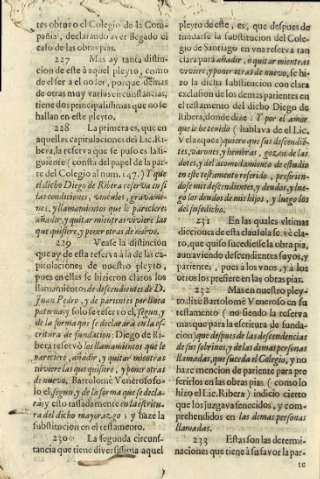 tes obras o el Colegio de la Com-
pañia, declarando aver llegado el
caso de las obras pias.
227 Mas ay tanta distin-
cion de este à aquel pleyto, como
del ser a el no ser, porque demas
de otras muy varias en circunstancias,
tiene dos principalissimas que no se
hallan en este pleyto.
228 La primera es, que en
aquellas capitulaciones del Lic. Ri-
bera, la reserva que se puso es la si-
guiente (consta del papel de la par-
te del Colegio al num. 147.) Y que
el dicho Diego de Ribera reserva en si
las condiciones, vinculos, gravame-
nes, y llamamientos que le pareciere
añadir, y quitar mientras viviere las
que quisiere, y poner otras de nuevo.
229 Vease la distincion
que ay de esta reserva à la de las ca-
pitulaciones de nuestro pleyto,
pues en ellas se hizieron claros los
llamamientos de descendientes de D.
Juan Pedro, y de parientes por linea
paterna y solo se reservò el, segun, y
de la forma que se declarara en la es-
critura de fundacion. Diego de Ri-
bera reservò los llamamientos que le
pareciere, añadir, y quitar mientras
viviere las que quisiere, y poner otras
de nuevo, Bartolomè Veneroso so-
lo el, segun, y de la forma que se decla-
ra y esto tassadamente en la escritu-
ra del dicho mayorazgo, y haze la
substitucion en el testamento.
230 La segunda circuns-
tancia que tiene diversissima aquel
pleyto de este, es, que despues de
tratarse la substitucion del Cole-
gio de Santiago en una reserva tan
clara para añadir, o quitar mientras
viviere, y poner otras de nuevo, se hi-
zo la dicha substitucion con clara
exclusion de los demas parientes en
el testamento del dicho Diego de
Ribera, donde dize: Y por el amor
que le he tenido (hablava de el Lic.
Velazquez) quiero que sus descendien-
tes, varones, y hembras, gozen de las
dotes, y del acomodamiento de estudio
en este testamento referido, prefirien-
dose mis descendientes, y deudos, y lue-
go los deudos de mis hijos, y luego los
del susodicho.
231 En las quales ultimas
dicciones de esta clausula se vè cla-
to, que quiso sucediesse la obra pia,
aun aviendo descendientes suyos, y
parientes, pues a los unos, y à los
otros los prefiere en las obras pias.
232 Mas en nuestro pleyto
todo dize Bartolomè Veneroso en su
testamento (no siendo la reserva
mas que para la escritura de funda-
cion) que despues de las descendencias
de sus sobrinos, y de las demas personas
llamadas, que suceda el Colegio, y no
haze mencion de pariente para pre-
ferirlos en las obras pias (como lo
hizo el Lic. Ribera) indicio cierto
que los juzgava fenecidos, y com-
prehendidos en las demas personas
llamadas.
233 Estas son las determi-
naciones que tiene à su favor la par-
te